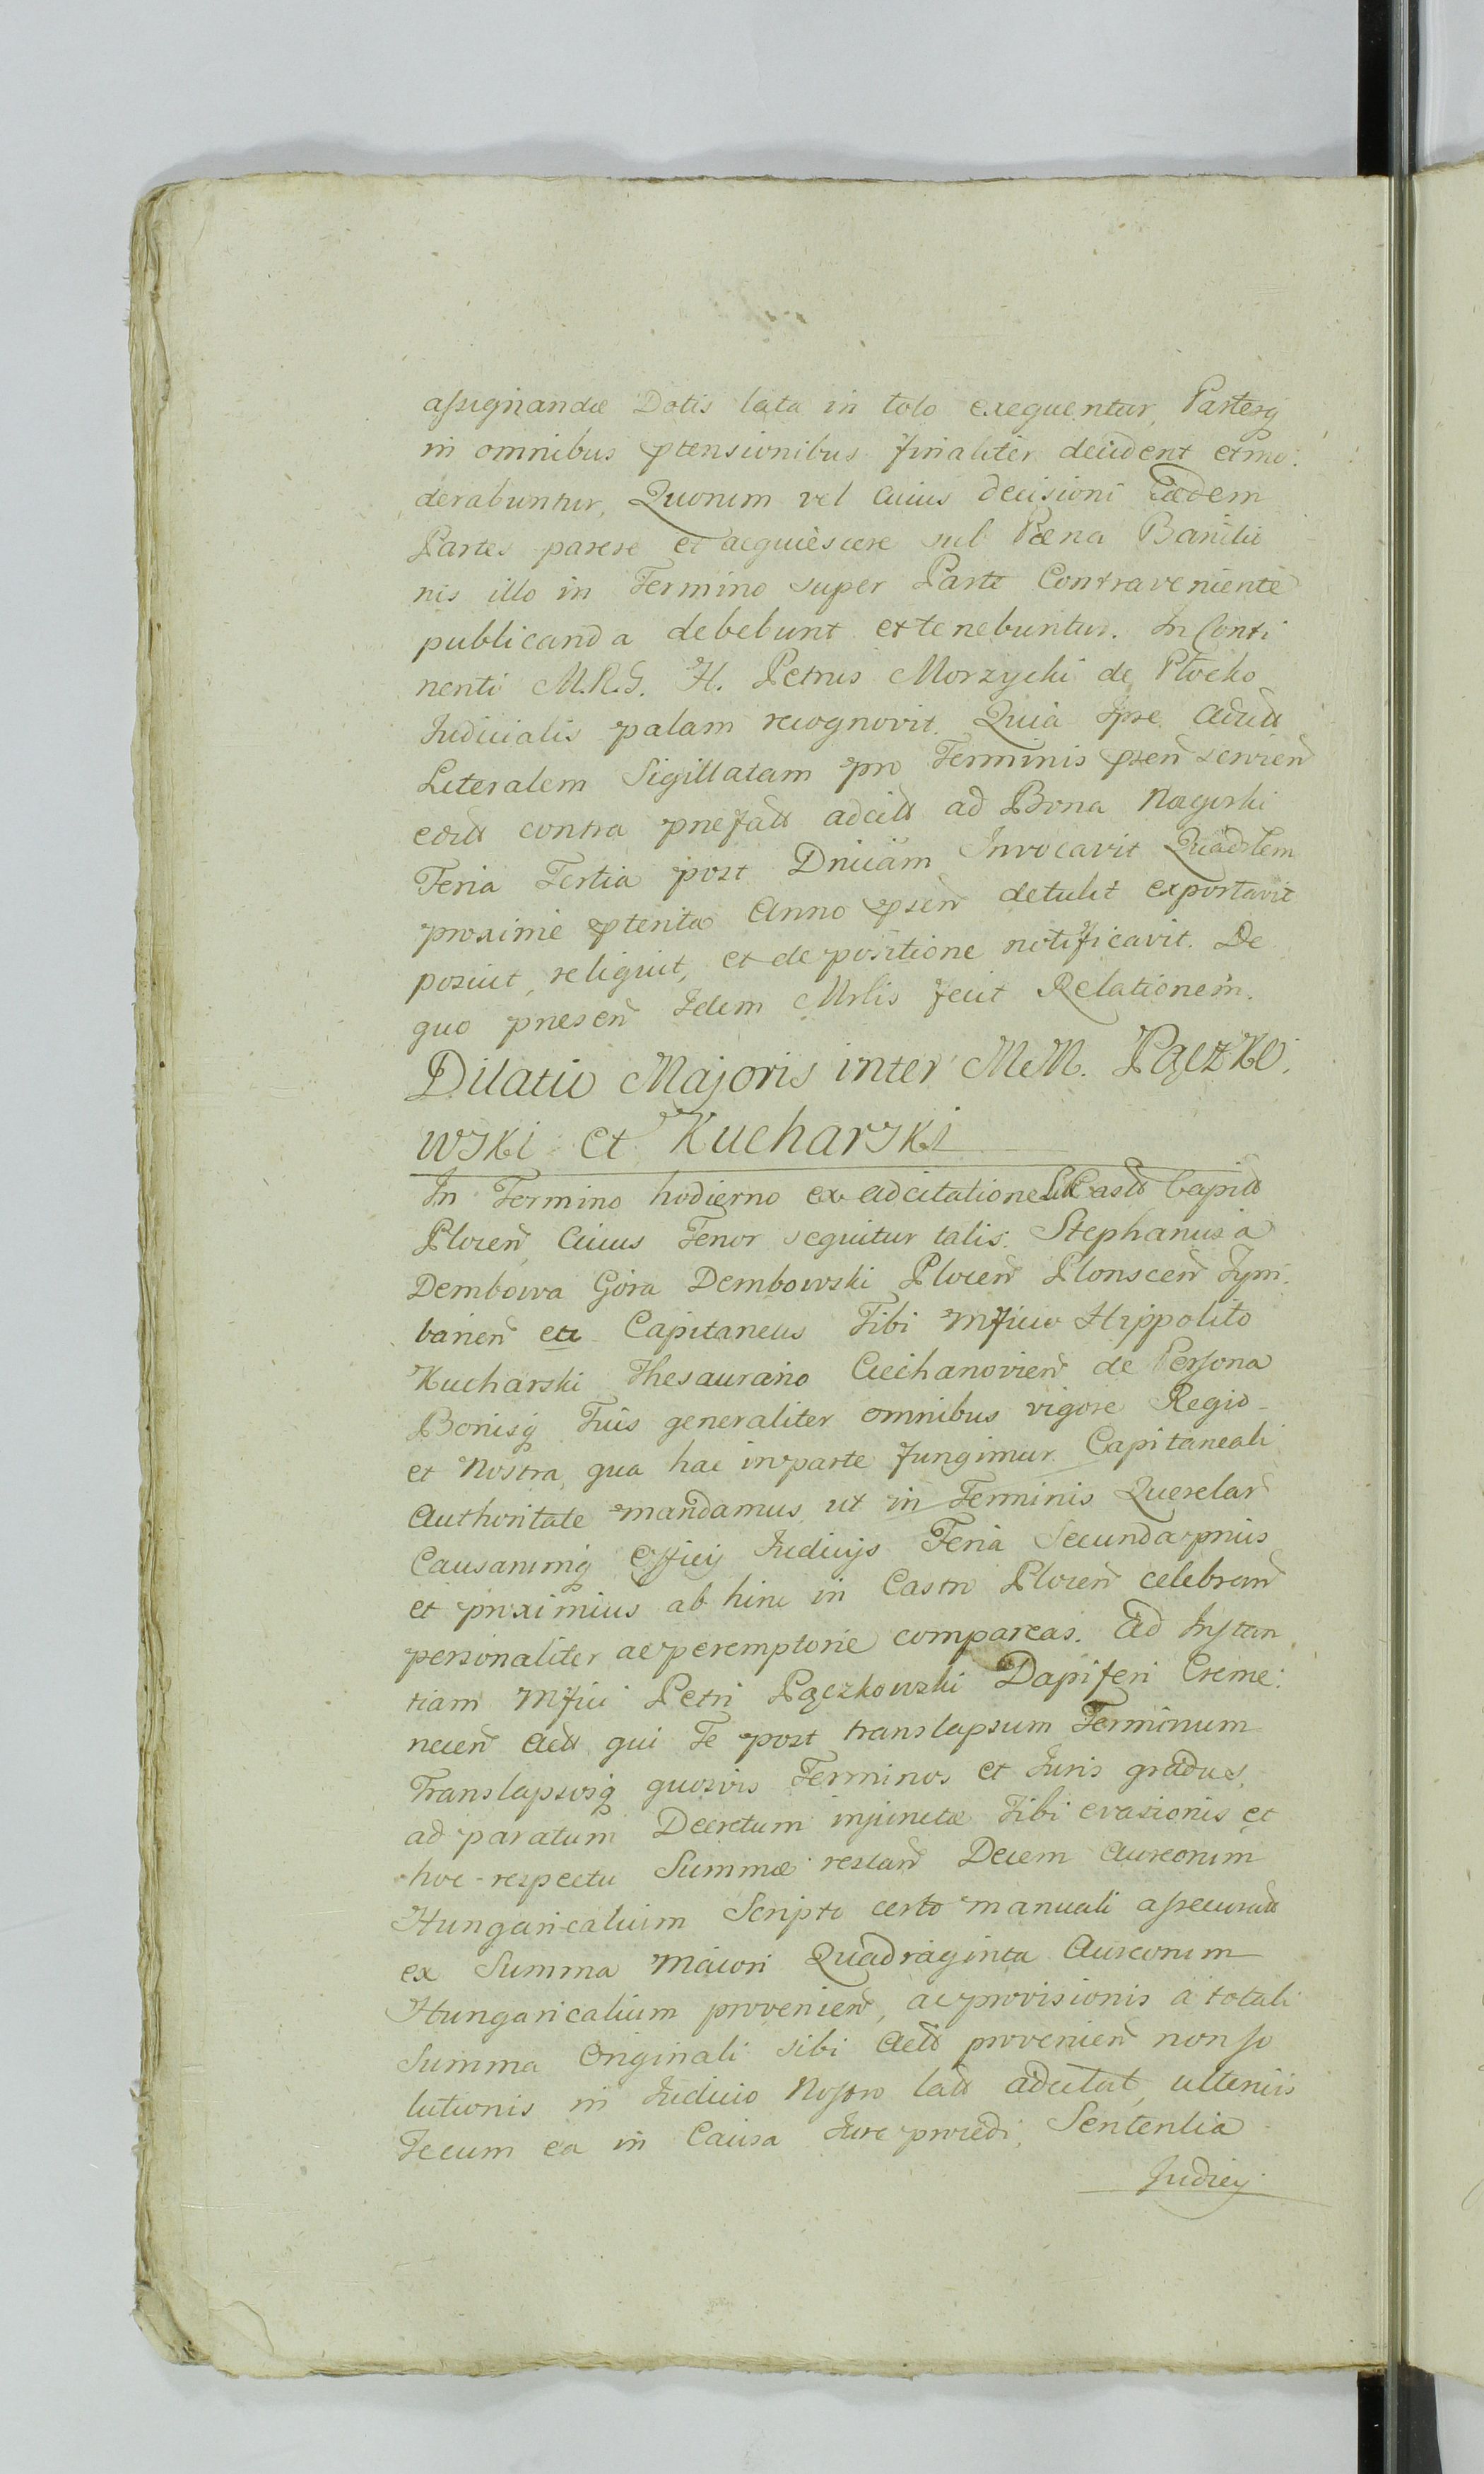 assignandæ Dotis lata in toto exequentur, Partesq
in omnibus ptensionibus finaliter decident et mo:
derabuntur, Quorum vel cuius decisioni Eædem
Partes parere et acquiescere sub Pæna Banitio
nis illo in Termino super Parte Contraveniente
publicanda debebunt et tenebuntur. In Conti
nenti M.R.G. H. Petrus Morzycki de Płocko
Judicialis palam recognovit. Quia Ipse Adcitt
Literalem Sigillatam pro Terminis psen servien
edit contra prefatt adcitt ad Bona Nagorki
Feria Tertia post Dnicam Invocavit Quadlem
proxime pterita Anno psen detulit exportavit
posuit, reliquit, et de positione notificavit. De
quo presen Idem Mrlis fecit Relationem.
Dilatio Majoris inter MM. Pączko:
wski et Kucharski
In Termino hodierno ex adcitatione Castr Capitt
Plocen Cuius Tenor sequitur talis. Stephanus a
Dembowa Góra Dembowski Plocen Plonscen Tym:
banen etc Capitaneus Tibi Mfico Hippolito
Kucharski Thesaurario Ciechanovien de Persona
Bonisq Tuis generaliter omnibus vigore Regio
et Nostra, qua hac in parte fungimur Capitaneali
Authoritate mandamus, ut in Terminis Querelar
Causarumq Officij Judicijs Feria Secunda prius
et proximius ab hinc in Castro Plocen celebran
personaliter ac peremptorie compareas. Ad Instan
tiam Mfici Petri Pączkowski Dapiferi Creme:
necen Actt qui Te post translapsum Terminum
Translapsosq quosvis Terminos et Juris gradus,
ad paratum Decretum injunctæ Tibi evasionis et
hoc respectu Summæ restan Decem Aureorum
Hungaricalium Scripto certo manuali assecuratt
ex Summa maiori Quadraginta Aureorum
Hungaricalium provenien, ac provisionis a totali
Summa Originali sibi Actt provenien non so
lutionis in Judicio Nostro latt adcitat, ulterius
Tecum ea in Causa Jure procedi, Sententia
Judicij